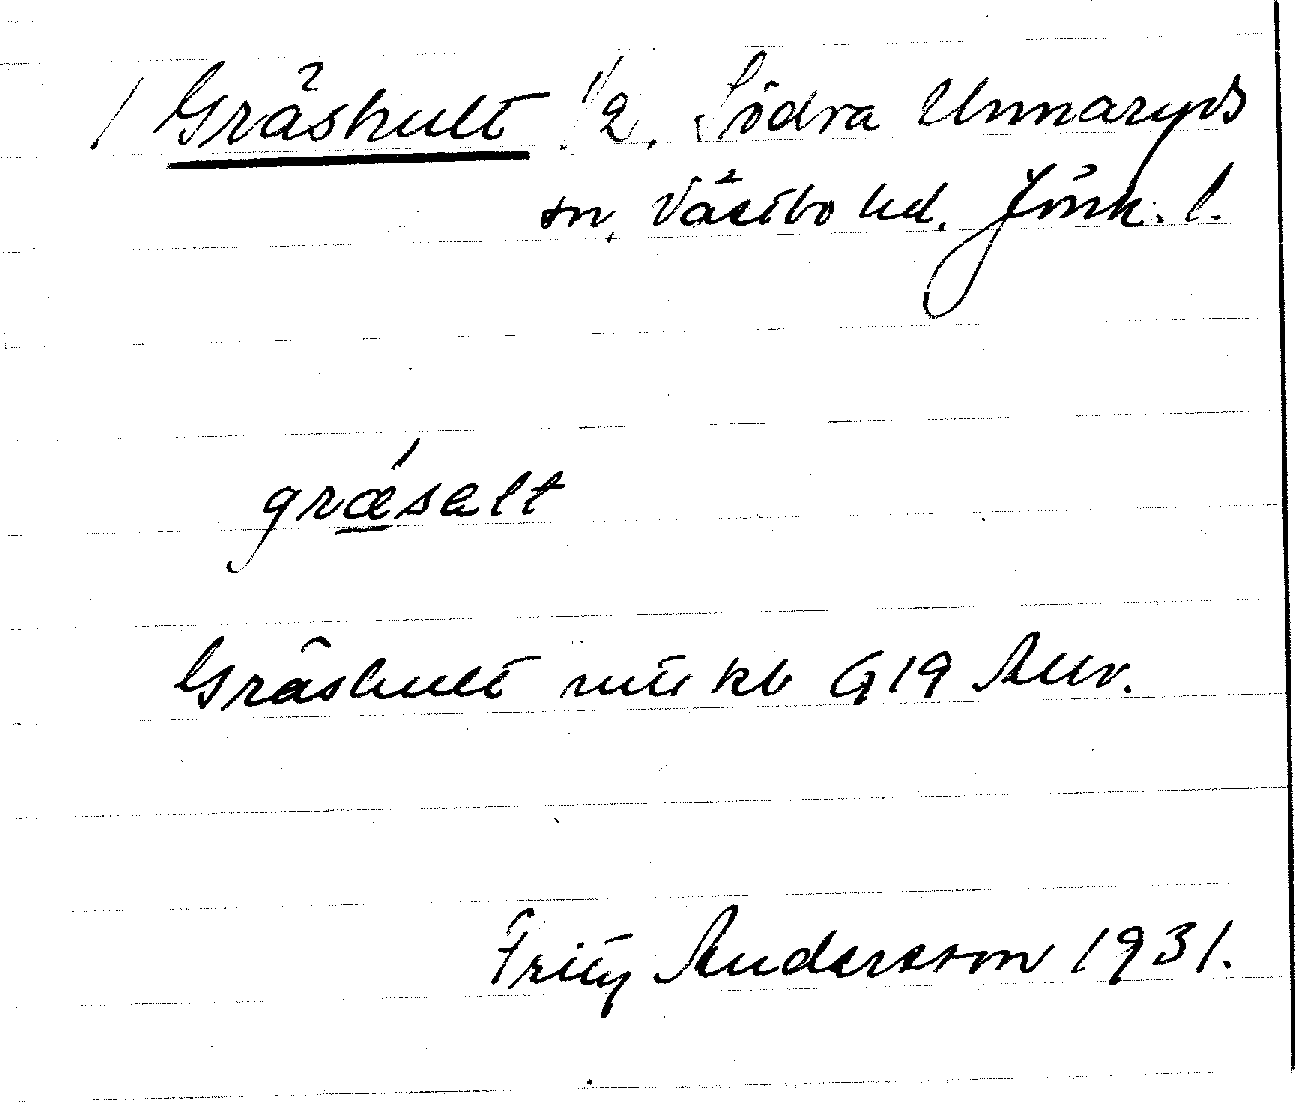 / Gräshult 1/2. Södra Unnaryds
sn, Västbo hd. Jönk. l.
grǽsalt
Gräshult
G 19 Auv.
Fritz Andersson 1931.